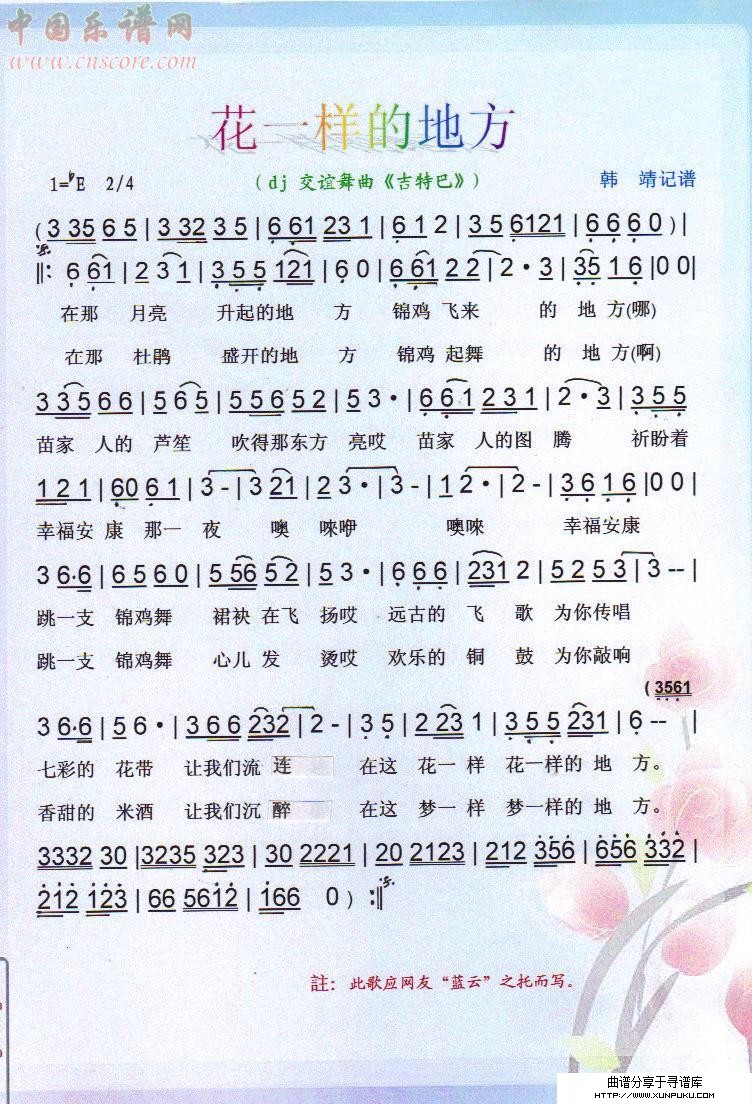 中国乐谱网
www.cnscore.com
花一样的地方
1=♭E 2/4 （dj 交谊舞曲《吉特巴》） 韩 靖记谱
( 3 35 6 5 | 3 32 3 5 | 6 61 23 1 | 6 1 2 | 3 5 6121 | 6 6 6 0 ) |
‖: 6 61 | 2 3 1 | 3 5 5 121 | 6 0 | 6 61 2 2 | 2 · 3 | 35 1 6 | 0 0 |
在那 月亮 升起的地 方 锦鸡 飞来 的 地 方(哪)
在那 杜鹃 盛开的地 方 锦鸡 起舞 的 地 方(啊)
3 3 5 6 6 | 5 6 5 | 5 5 6 5 2 | 5 3 · | 6 6 1 2 3 1 | 2 · 3 | 3 5 5
苗家 人的 芦笙 吹得那东方 亮哎 苗家 人的图 腾 祈盼着
1 2 1 | 60 6 1 | 3 - | 3 21 | 2 3 · | 3 - | 1 2 · | 2 - | 3 6 1 6 | 0 0 |
幸福安 康 那一 夜 噢 唻咿 噢唻 幸福安康
3 6·6 | 6 5 6 0 | 5 56 5 2 | 5 3 · | 6 6 6 | 231 2 | 5 2 5 3 | 3 -- |
跳一支 锦鸡舞 裙袂 在飞 扬哎 远古的 飞 歌 为你传唱
跳一支 锦鸡舞 心儿 发 烫哎 欢乐的 铜 鼓 为你敲响
( 3561
3 6·6 | 5 6 · | 3 6 6 232 | 2 - | 3 5 | 2 23 1 | 3 5 5 231 | 6 -- |
七彩的 花带 让我们流 连 在这 花一 样 花一样的 地 方。
香甜的 米酒 让我们沉 醉 在这 梦一 样 梦一样的 地 方。
3332 30 | 3235 323 | 30 2221 | 20 2123 | 212 356 | 656 332 |
212 123 | 66 5612 | 166 0 ) :‖
註：此歌应网友“蓝云”之托而写。
曲谱分享于寻谱库
HTTP://WWW.XUNPUKU.COM